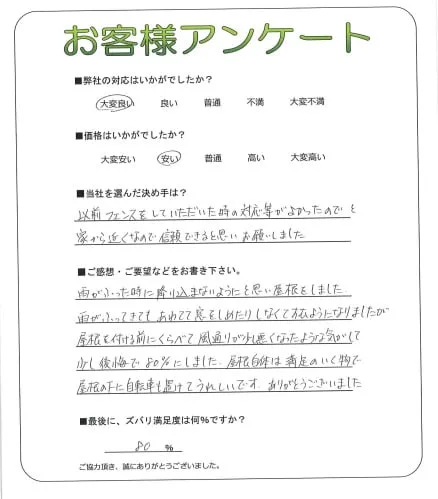 お客様アンケート
■弊社の対応はいかがでしたか？
大変良い 良い 普通 不満 大変不満
■価格はいかがでしたか？
大変安い 安い 普通 高い 大変高い
■当社を選んだ決め手は？
以前フェンスをしていただいた時の対応等がよかったので と
家から近くなので信頼できると思いお願いしました
■ご感想・ご要望などをお書き下さい。
雨がふった時に降り込まないようにと思い屋根をしました
雨がふってきてもあわてて窓をしめたりしなくて いいようになりましたが
屋根を付ける前にくらべて風通りが少し悪くなったような気がして
少し後悔で80%にしました。屋根自体は満足のいく物で
屋根の下に自転車も置けてうれしいです。ありがとうございました
■最後に、ズバリ満足度は何%ですか？
80 %
ご協力頂き、誠にありがとうございました。